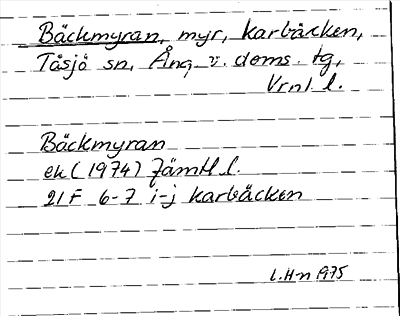 Bäckmyran, myr, Karbäcken,
Tåsjö sn, Ång. v. doms. tg,
Vrnl. l.
Bäckmyran
ek (1974) Jämtl l.
21F 6-7 i-j Karbäcken
L.H-n 1975